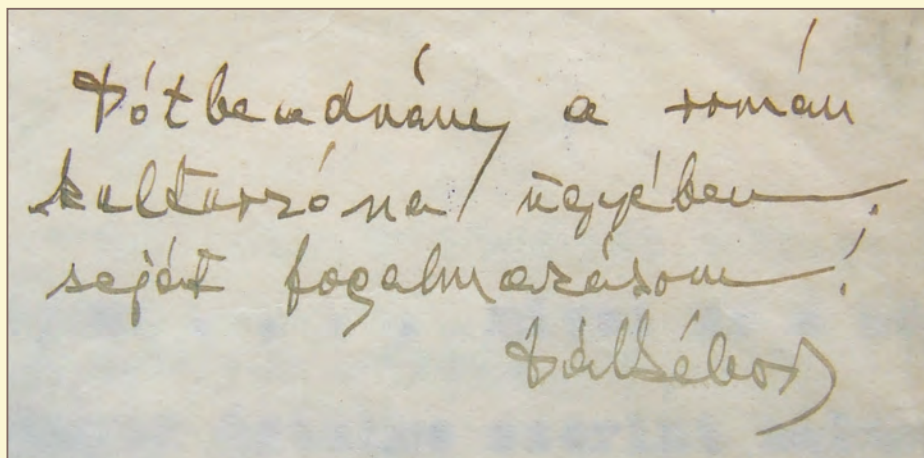 Pótbeadvány a román
kultúrzóna ügyében,
saját fogalmazásom!
Pál Gábor